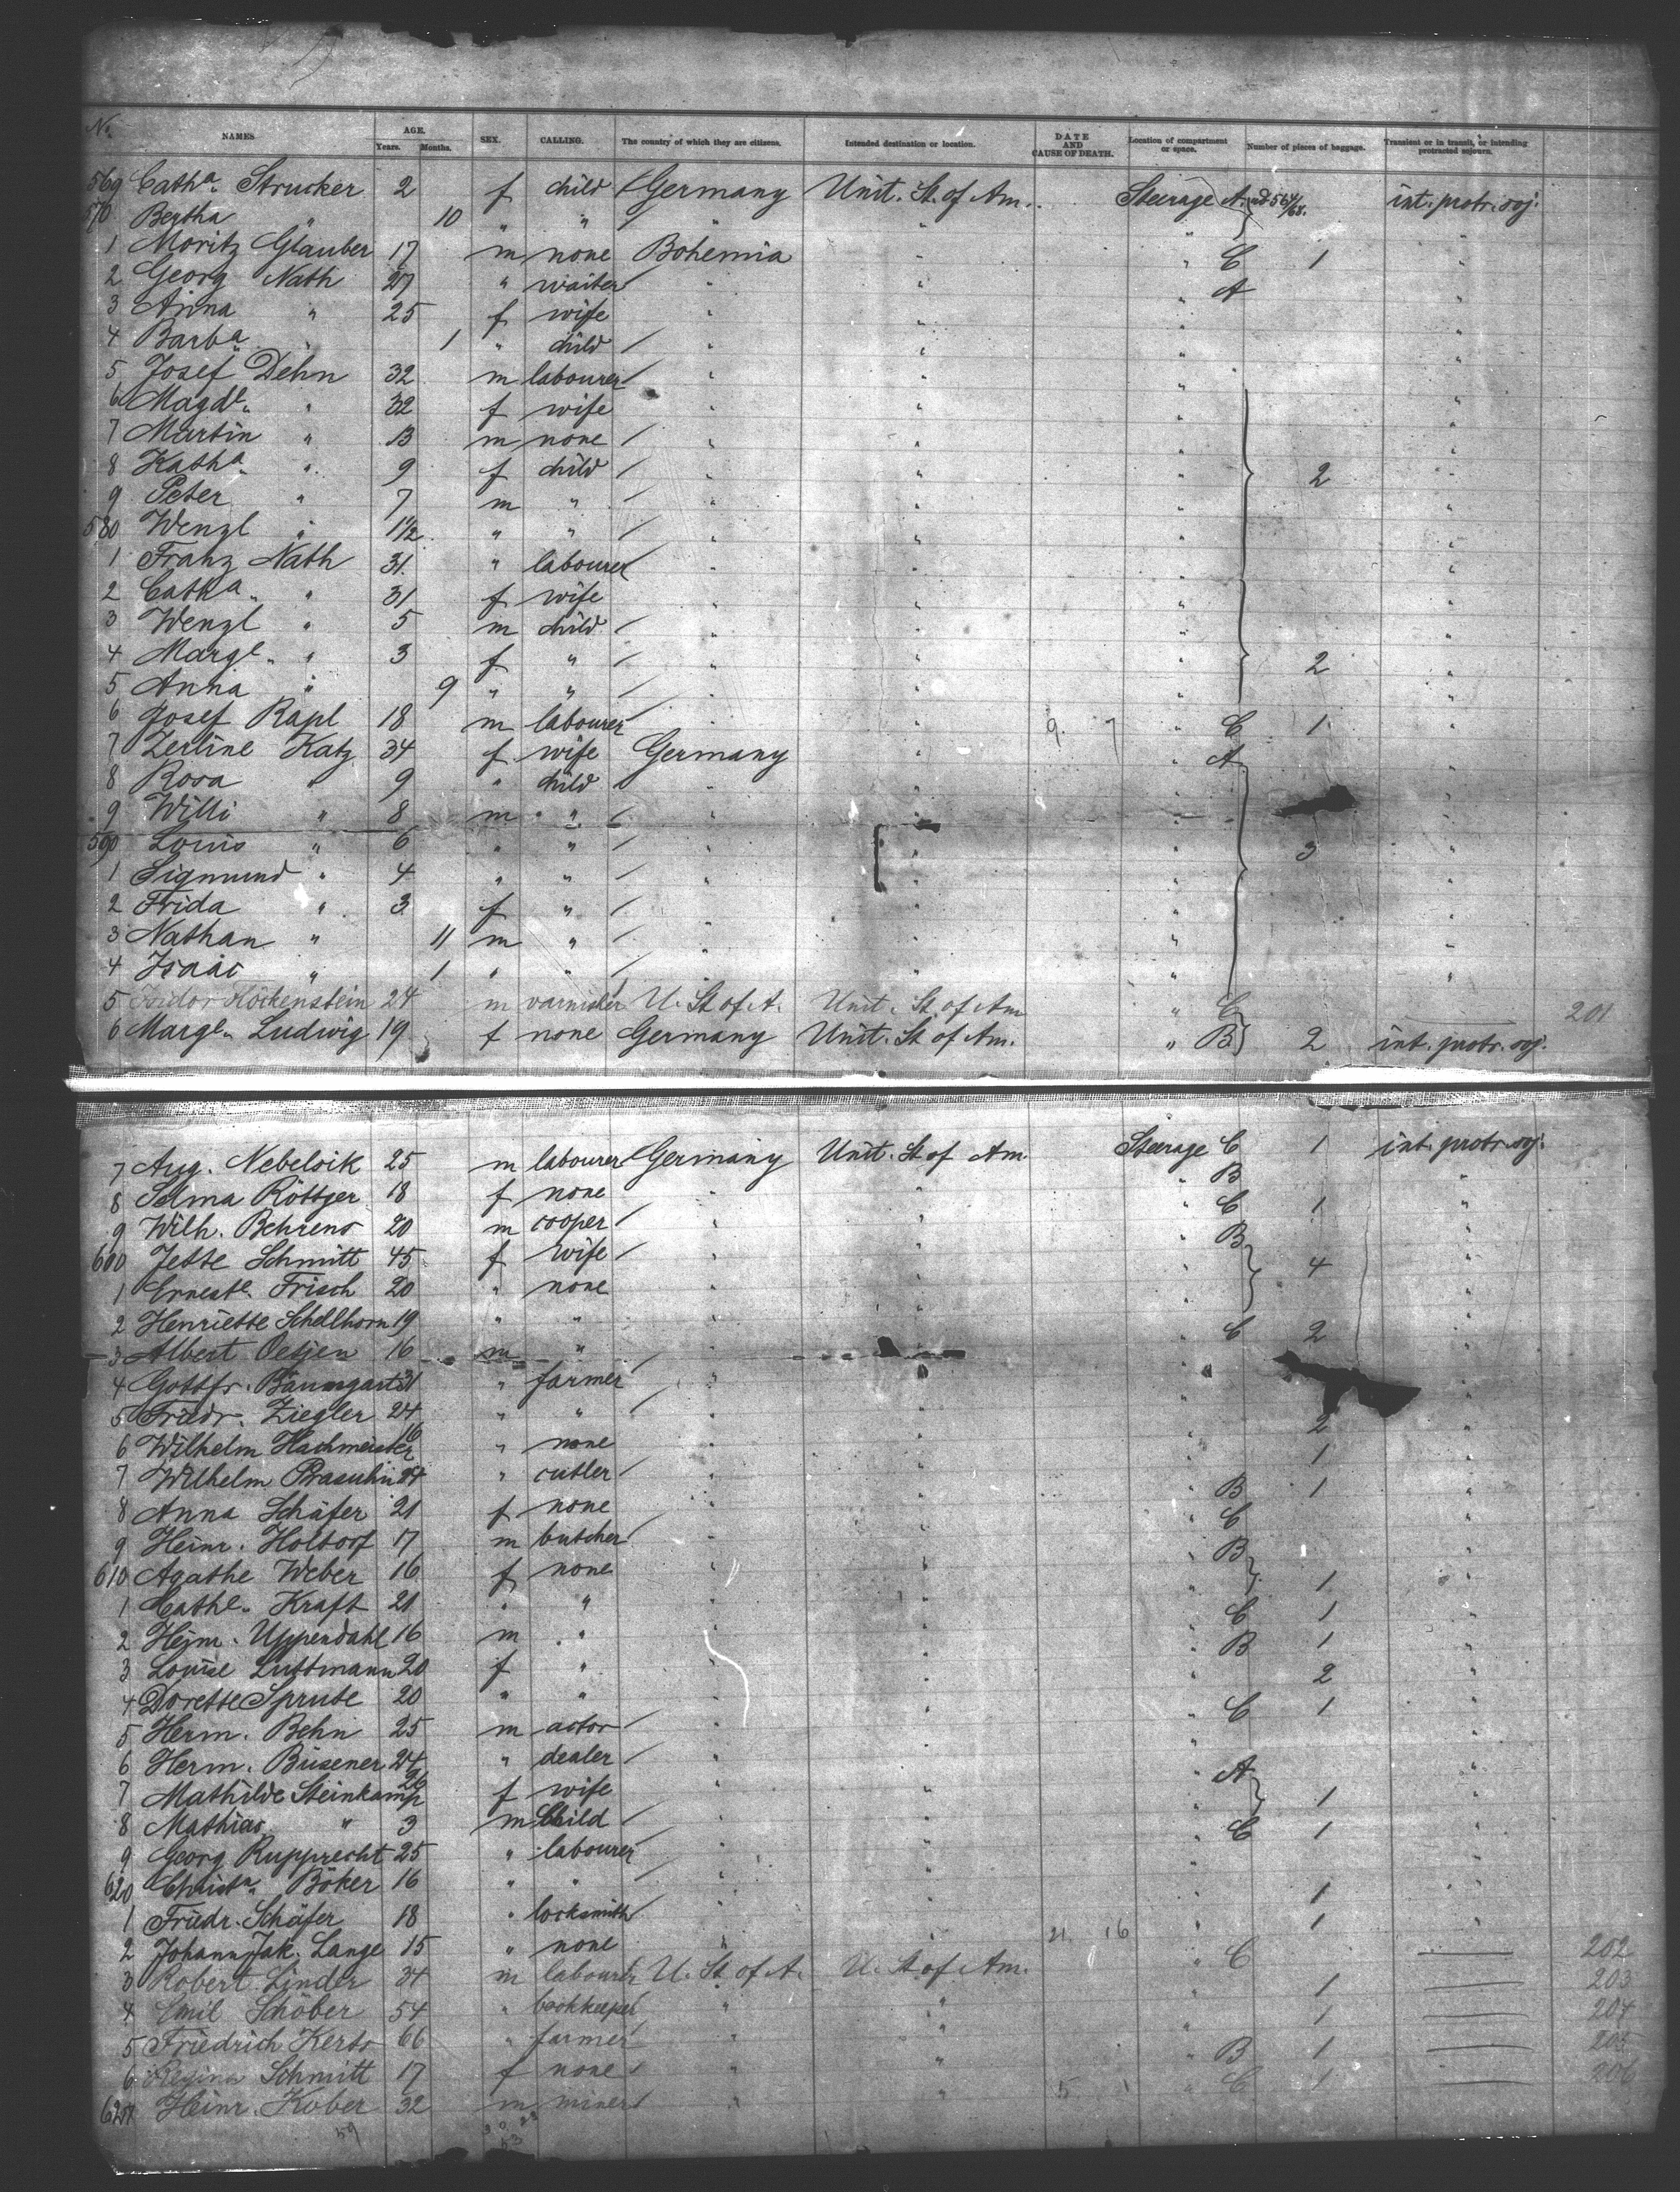 No. NAMES. AGE. Years. Months. SEX. CALLING. The country of which they are citizens. Intended destination or location. DATE AND CAUSE OF DEATH. Location of compartment or space. Number of pieces of baggage. Transient or in transit, or intending protracted sojourn.
569 Catha. Strucker 2 f child Germany Unit. St. of Am. Steerage A. int. protr. soj.
570 Bertha " 10 " " " " " "
1 Moritz Glauber 17 m none Bohemia " " C 1 "
2 Georg Nath 27 " waiter " " " A "
3 Anna " 25 f wife " " " "
4 Barba. " 1 " child " " " "
5 Josef Dehn 32 m labourer " " " "
6 Magdl. " 32 f wife " " " "
7 Martin " 13 m none " " " "
8 Katha. " 9 f child " " " 2 "
9 Peter " 7 m " " " " "
580 Wenzl " 1 1/2 " " " " " "
1 Franz Nath 31 " labourer " " " "
2 Catha. " 31 f wife " " " "
3 Wenzl " 5 m child " " " "
4 Margl. " 3 f " " " " 2 "
5 Anna " 9 " " " " " "
6 Josef Rapl 18 m labourer " " 9 7 " C 1 "
7 Zerline Katz 34 f wife Germany " " A "
8 Rosa " 9 " child " " " "
9 Willi " 8 m " " " " "
590 Louis " 6 " " " " " 3 "
1 Sigmund " 4 " " " " " "
2 Frida " 3 f " " " " "
3 Nathan " 11 m " " " " "
4 Isaac " 1 " " " " " "
5 Isidor Höckenstein 24 m varnisher U. St. of A. Unit. St. of Am " C 201
6 Margl. Ludwig 19 f none Germany Unit. St. of Am. " B 2 int. protr. soj.
7 Aug. Nebelsik 25 m labourer Germany Unit. St. of Am. Steerage C 1 int. protr. soj.
8 Selma Röttger 18 f none " " " B "
9 Wilh. Behrens 20 m cooper " " " C 1 "
600 Jette Schmitt 45 f wife " " B "
1 Ernestl. Frisch 20 " none " " " 4 "
2 Henriette Schellhorn 19 " " " " " "
3 Albert Oetjen 16 m " " C 2 "
4 Gottfr. Baumgartl 31 " farmer " " " "
5 Friedr. Ziegler 24 " " " " " 2 "
6 Wilhelm Hachmeister 16 " none " " " 1 "
7 Wilhelm Brasuhn 24 " cutler " " " 1 "
8 Anna Schäfer 21 f none " " " B "
9 Heinr. Holtorf 17 m butcher " " " C "
610 Agathe Weber 16 f none " " " B "
1 Cathl. Kraft 21 " " " " " 1 "
2 Heinr. Uppendahl 16 m " " " " C 1 "
3 Louise Luttmann 20 f " " " " B 1 "
4 Dorette Sprute 20 " " " " " 2 "
5 Herm. Behn 25 m actor " " " C 1 "
6 Herm. Büsener 24 " dealer " " " "
7 Mathilde Steinkamp 26 f wife " " " A "
8 Mathias " 3 m Child " " " 1 "
9 Georg Rupprecht 25 " labourer " " C 1 "
620 Christn. Böker 16 " " " " " "
1 Friedr. Schäfer 18 " locksmith " " " 1 "
2 Johann Jak. Lange 15 " none " " 21 16 " 1 "
3 Robert Linder 34 m labourer U. St. of A. U. St. of Am. " C 202
4 Emil Schöber 54 " bookkeeper " " 1 203
5 Friedrich Kerbs 66 " farmer " " " 1 204
6 Regina Schmitt 17 f none " " " B 1 205
627 Heinr. Kober 32 m miner " " 5 1 " C 1 206
59